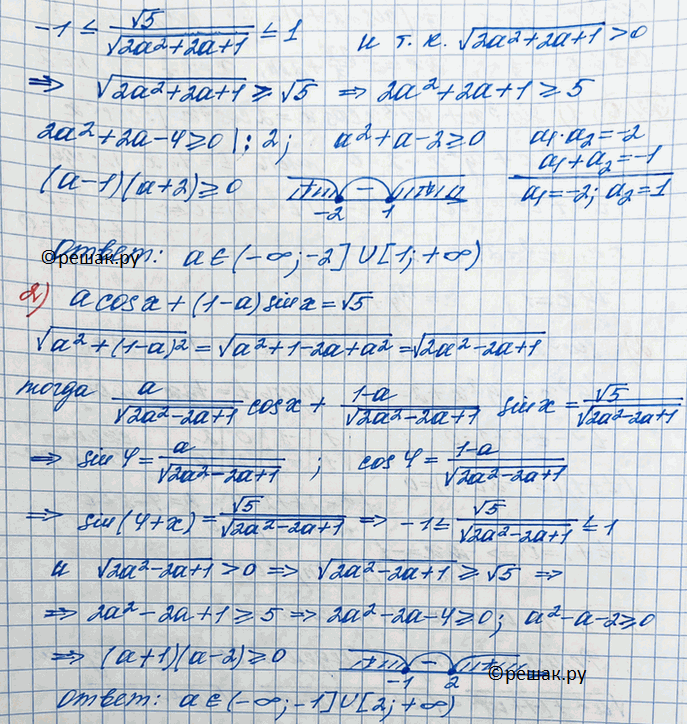 -1 ≤ √5/√(2a²+2a+1) ≤ 1 и т. к. √(2a²+2a+1) > 0
⇒ √(2a²+2a+1) ≥ √5 ⇒ 2a²+2a+1 ≥ 5
2a²+2a-4 ≥ 0 |: 2; a²+a-2 ≥ 0 a₁·a₂ = -2
a₁+a₂ = -1
(a-1)(a+2) ≥ 0 + - + a₁ = -2; a₂ = 1
-2 1
Ответ: a ∈ (-∞; -2] ∪ [1; +∞)
©решак.ру
2) a cos x + (1-a) sin x = √5
√(a²+(1-a)²) = √(a²+1-2a+a²) = √(2a²-2a+1)
тогда a/√(2a²-2a+1) cos x + (1-a)/√(2a²-2a+1) sin x = √5/√(2a²-2a+1)
⇒ sin φ = a/√(2a²-2a+1) ; cos φ = (1-a)/√(2a²-2a+1)
⇒ sin(φ+x) = √5/√(2a²-2a+1) ⇒ -1 ≤ √5/√(2a²-2a+1) ≤ 1
и √(2a²-2a+1) > 0 ⇒ √(2a²-2a+1) ≥ √5 ⇒
⇒ 2a²-2a+1 ≥ 5 ⇒ 2a²-2a-4 ≥ 0; a²-a-2 ≥ 0
⇒ (a+1)(a-2) ≥ 0 + - +
-1 2
©решак.ру
Ответ: a ∈ (-∞; -1] ∪ [2; +∞)